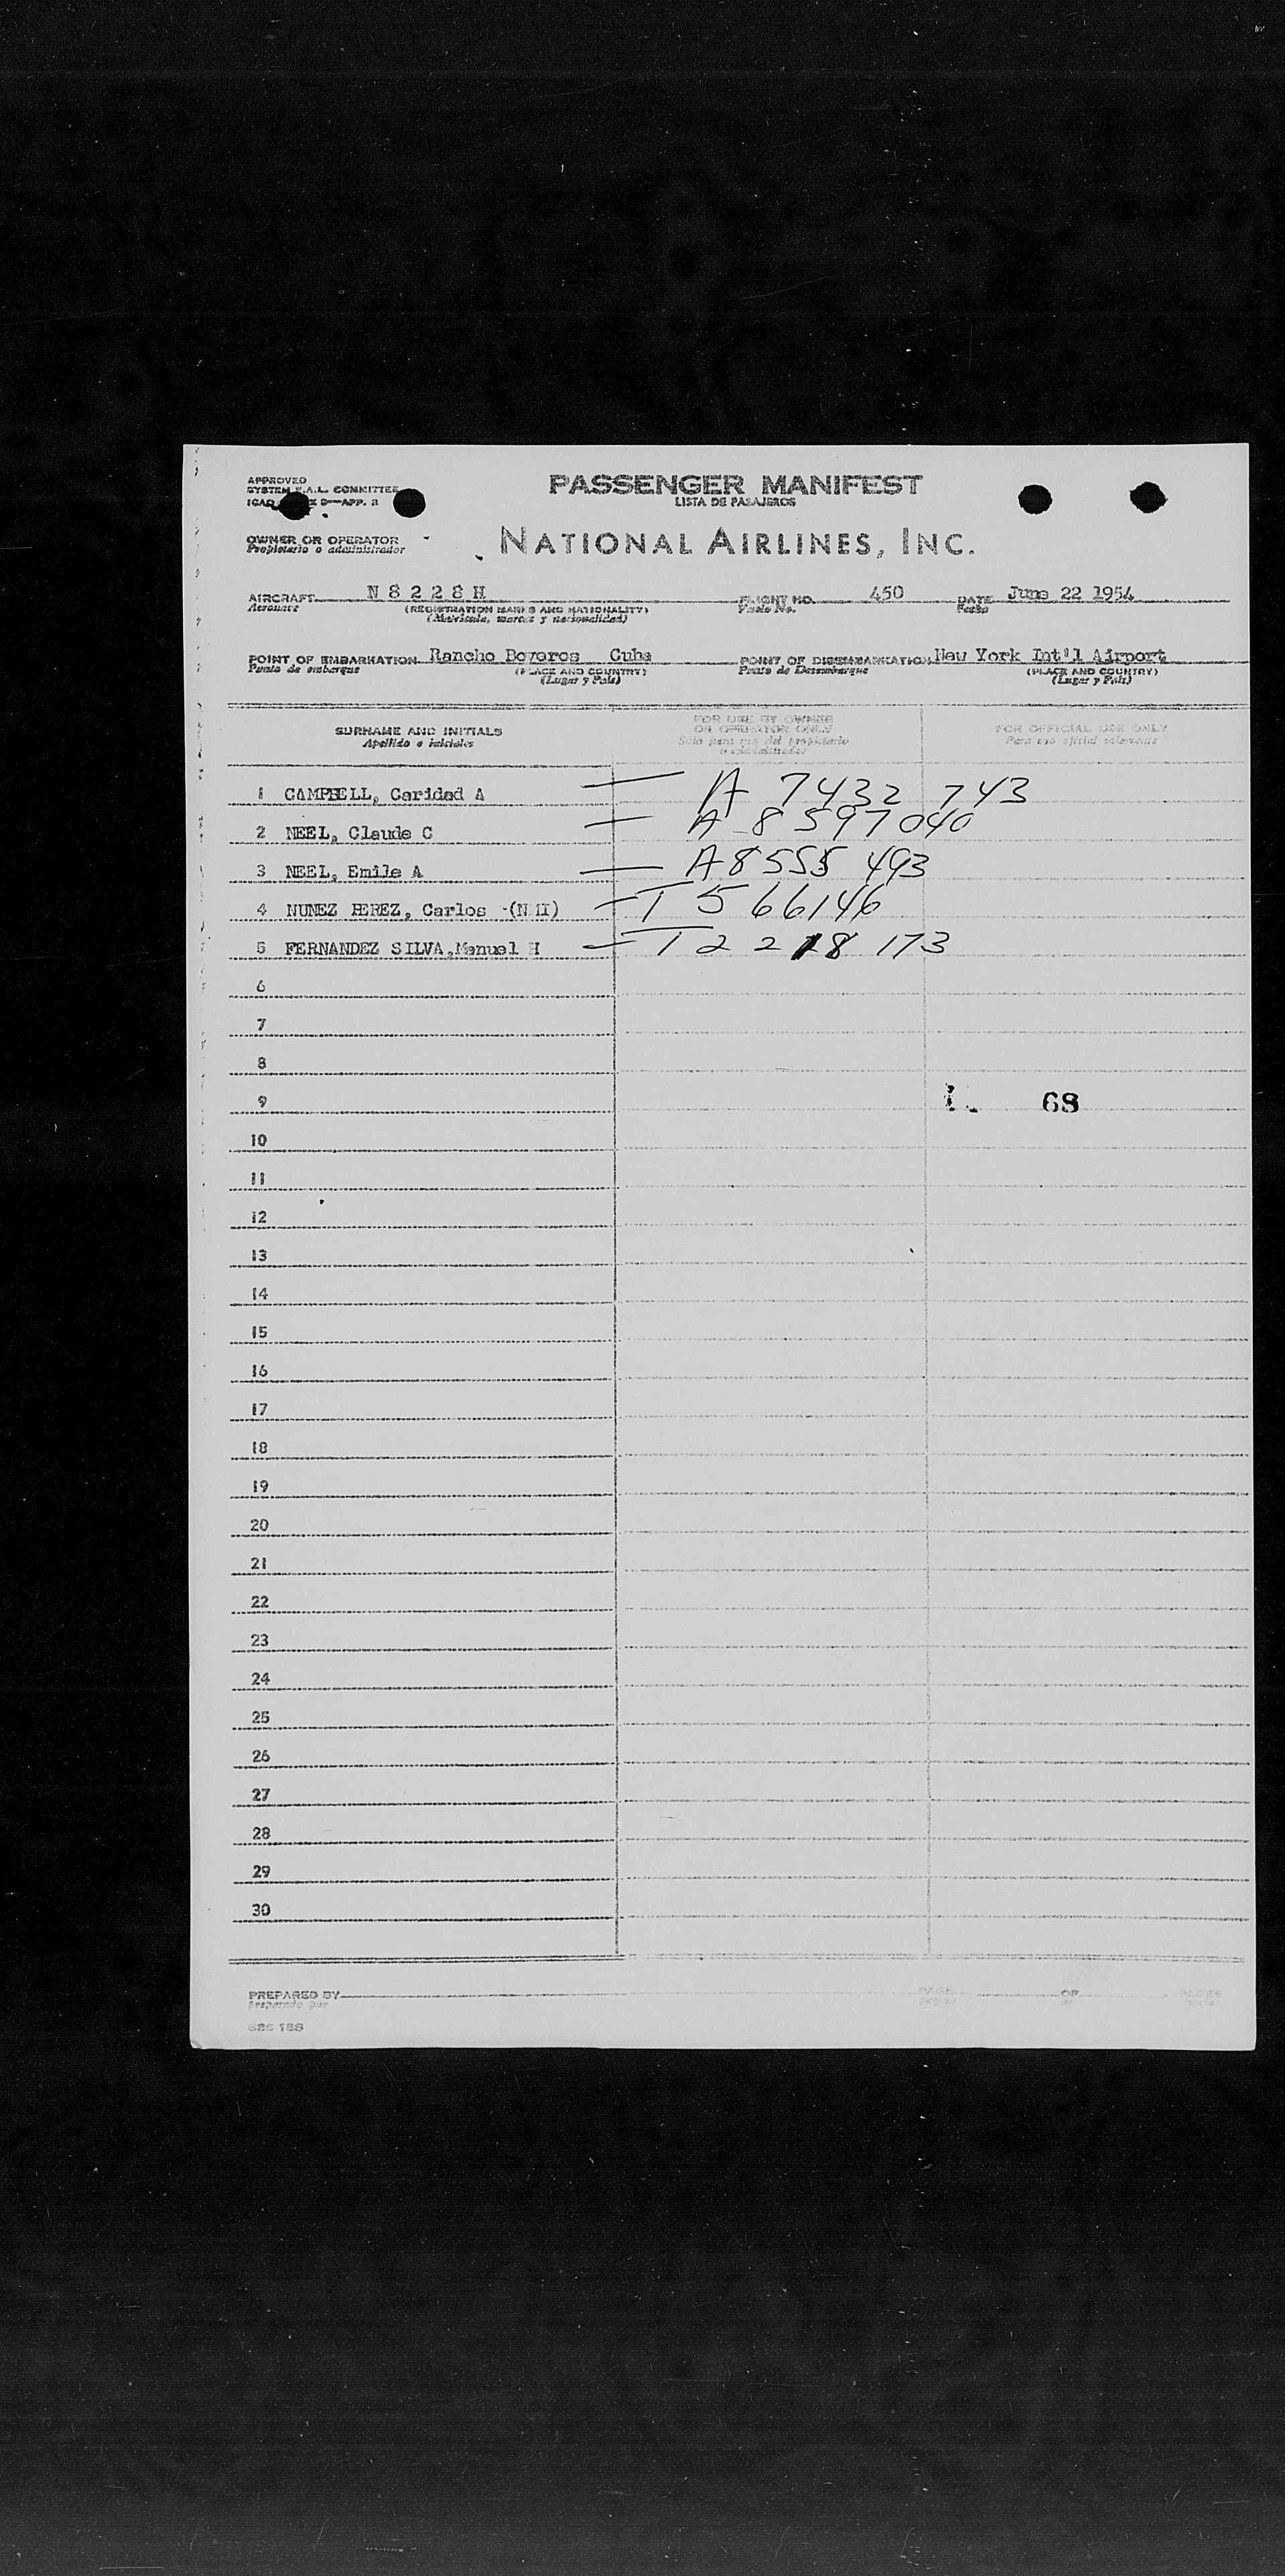 APPROVED
PASSENGER MANIFEST
LISTA DE PASAJEROS
OWNER OR OPERATOR
Propietario o administrador
NATIONAL AIRLINES, INC.
AIRCRAFT N 8 2 2 8 H FLIGHT NO. 450 DATE June 22 1954
Aeronave (REGISTRATION MARKS AND NATIONALITY) Vuelo No. Fecha
(Matrícula, marcas y nacionalidad)
POINT OF EMBARKATION Rancho Boyeros Cuba POINT OF DISEMBARKATION New York Int'l Airport
Punto de embarque (PLACE AND COUNTRY) Punto de Desembarque (PLACE AND COUNTRY)
(Lugar y País) (Lugar y País)
SURNAME AND INITIALS
Apellido e iniciales
FOR USE BY OWNER
OR OPERATOR ONLY
Sólo para uso del propietario
o administrador
FOR OFFICIAL USE ONLY
Para uso oficial solamente
1 CAMPBELL, Caridad A — A 7432 743
2 NEEL, Claude C — A 8597040
3 NEEL, Emile A — A8555 493
4 NUNEZ PEREZ, Carlos (N II) — T 5 66146
5 FERNANDEZ SILVA, Manuel H — T 2 2 18 173
6
7
8
9 68
10
11
12
13
14
15
16
17
18
19
20
21
22
23
24
25
26
27
28
29
30
PREPARED BY OF
Preparado por